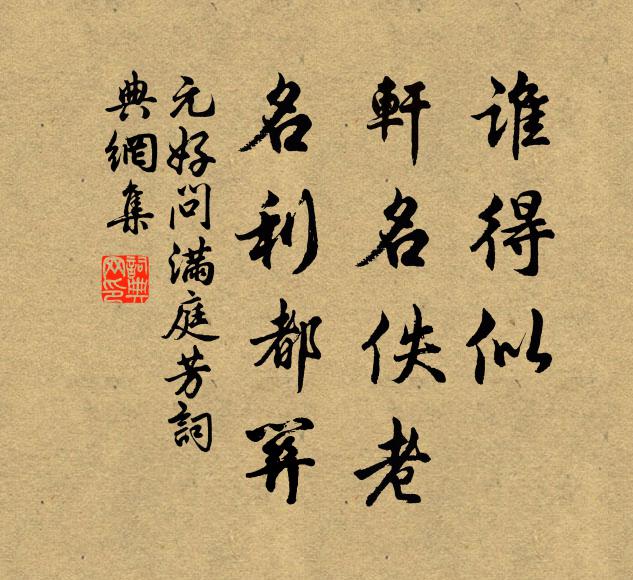 誰得似
軒名佚老
名利都𢍰
元好問滿庭芳詞
典網集
詞典網印